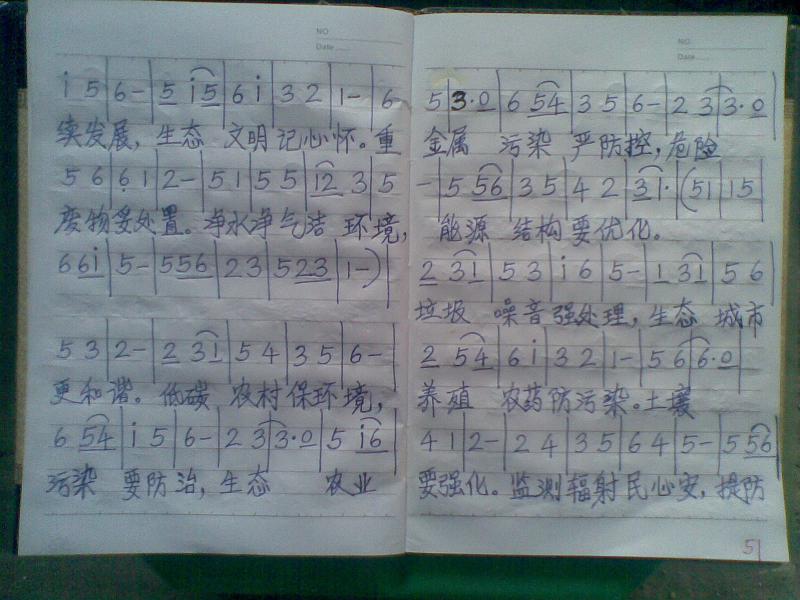 NO
Date
i 5 | 6 - | 5 i5 | 6 i | 3 2 | 1 - | 6
续发展,生态 文明记心怀。重
5 6 | 6 1 | 2 - | 5 1 | 5 5 | 12 3 | 5
废物妥处置。净水净气洁 环境,
6 6i | 5 - | 556 | 2 3 | 523 | 1 - )
5 3 | 2 - | 2 31 | 5 4 | 3 5 | 6 -
更和谐。低碳 农村保环境,
6 54 | i 5 | 6 - | 2 3 | 3·0 | 5 i6
污染 要防治,生态 农业
NO
Date
5 | 3·0 | 6 54 | 3 5 | 6 - | 2 3 | 3·0
金属 污染 严防控,危险
- | 5 56 | 3 5 | 4 2 | 31· | (51 | 15
能源 结构要优化。
2 31 | 5 3 | i 6 | 5 - | 1 31 | 5 6
垃圾 噪音强处理,生态 城市
2 54 | 6 i | 3 2 | 1 - | 5 6 | 6·0
养殖 农药防污染。土壤
4 1 | 2 - | 2 4 | 3 5 | 6 4 | 5 - | 5 56
要强化。监测辐射民心安,提防
51